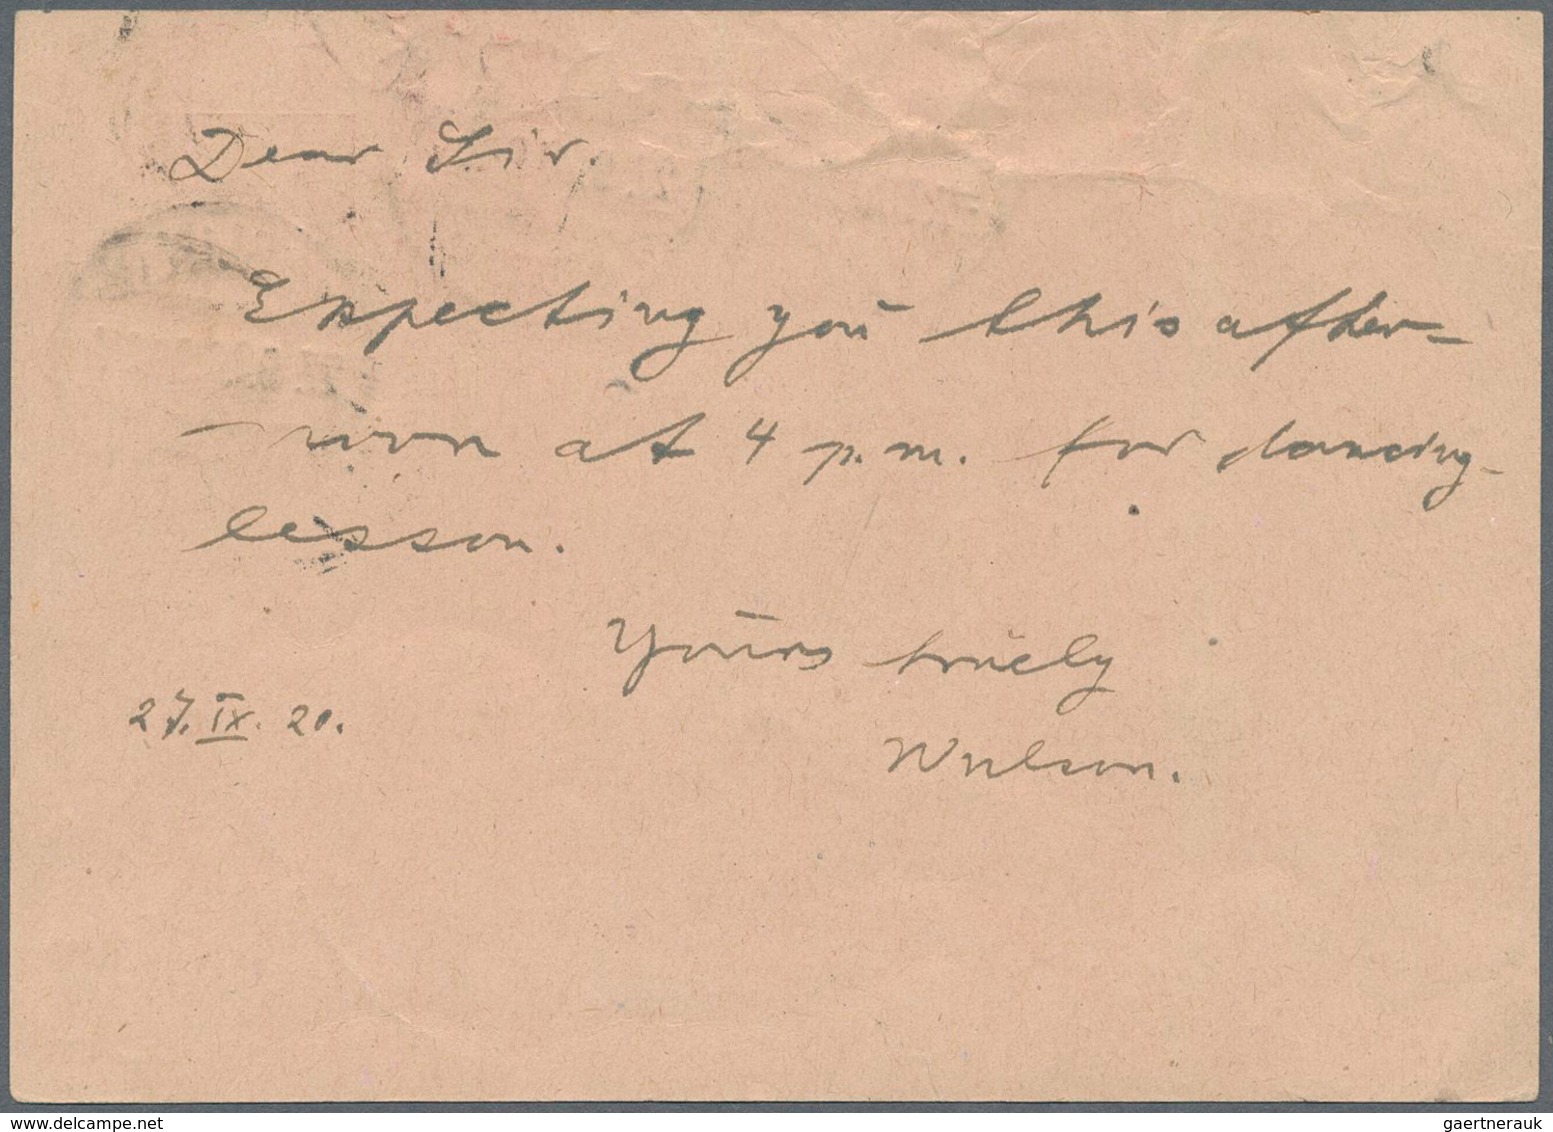 Dear Sir.
Expecting you this after-
-noon at 4 p.m. for dancing-
lesson.
Yours truely
27. IX. 20.
Wulson.
gaertnerauk @ delcampe.net